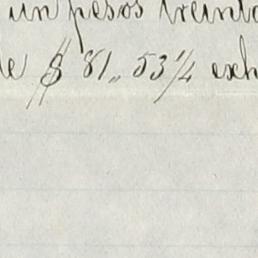 un pesos treinta
de $ 81,, 53 1/4 exh